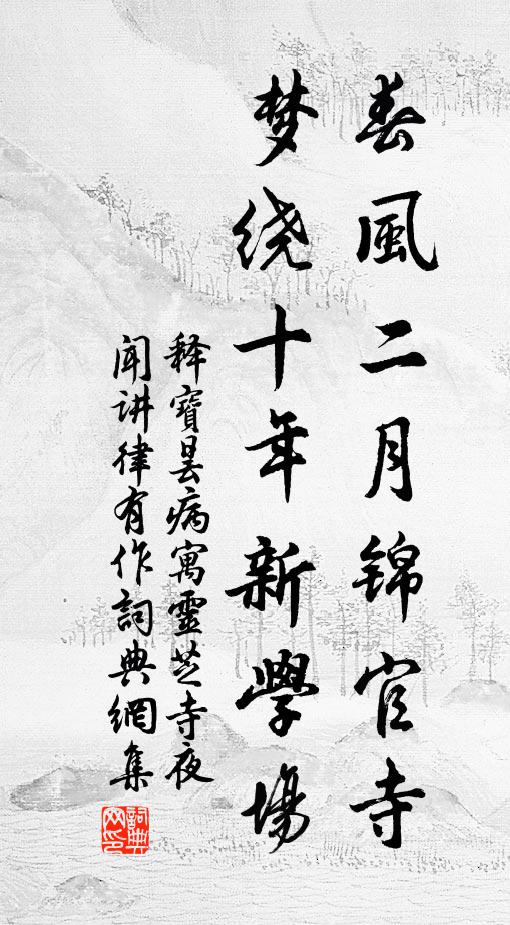 春風二月锦官寺
梦绕十年新學場
释寶昙病寓靈芝寺夜
闻讲律有作詞典網集
詞典網印